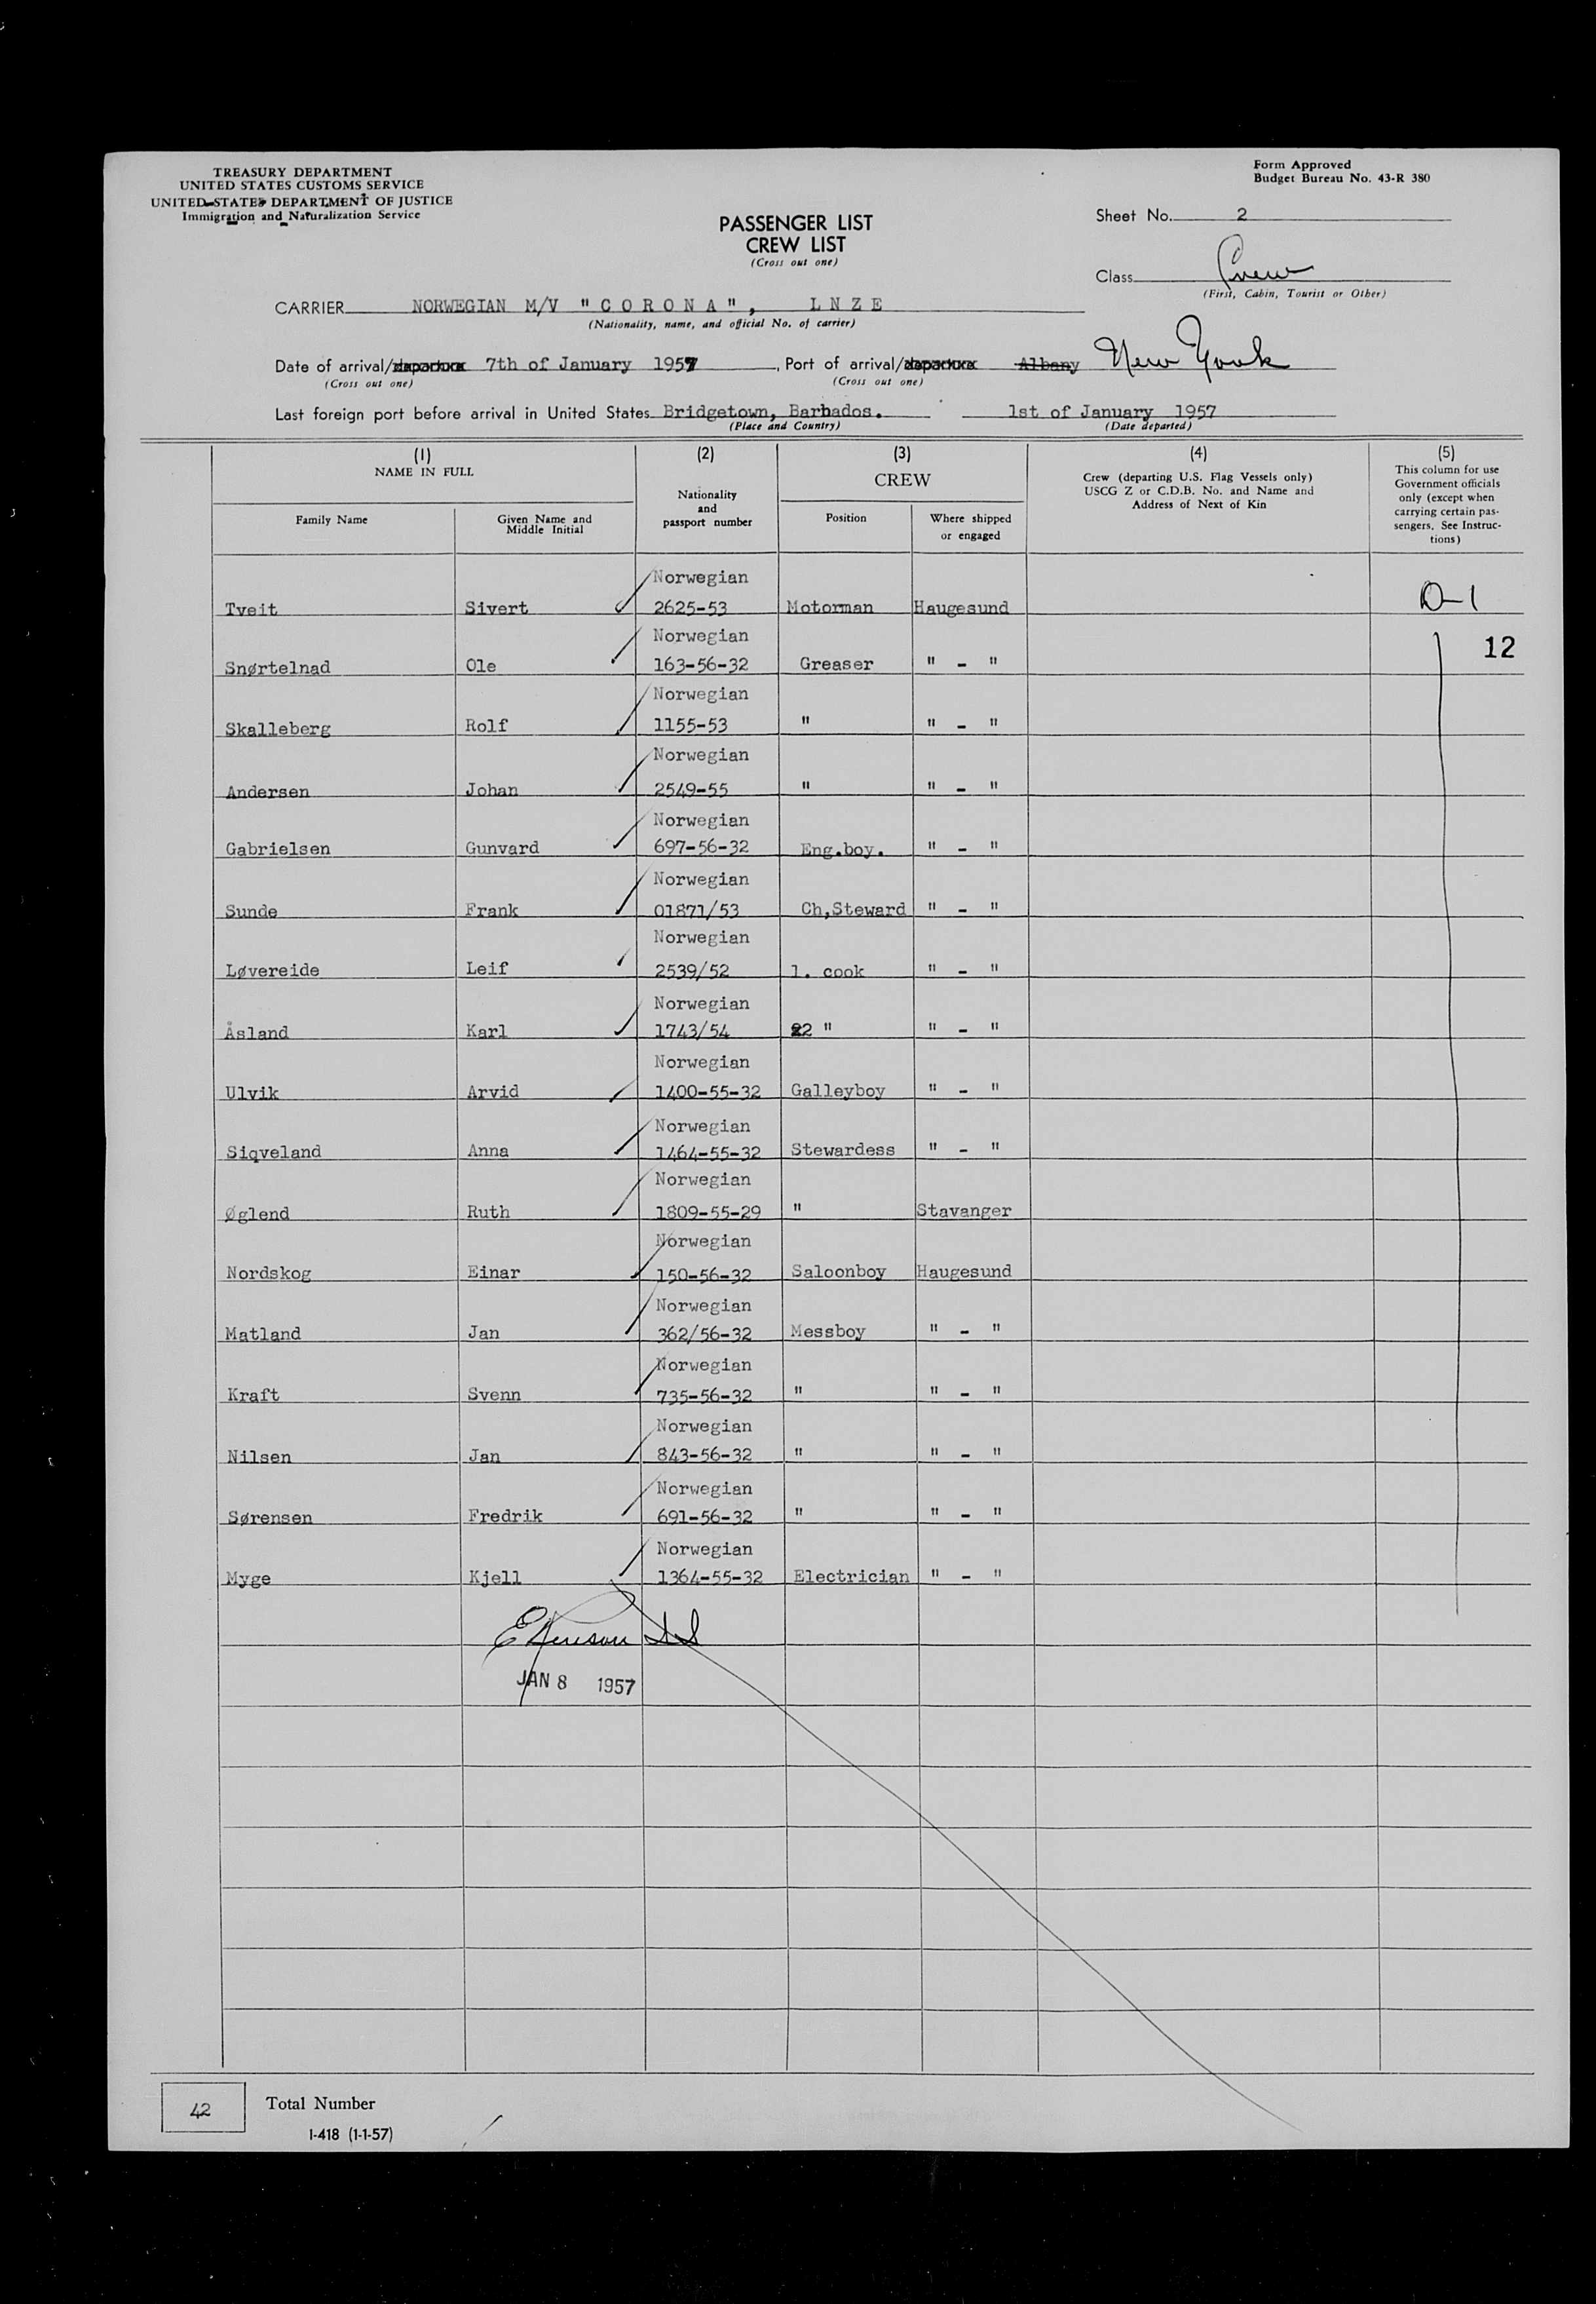 TREASURY DEPARTMENT
UNITED STATES CUSTOMS SERVICE
UNITED STATES DEPARTMENT OF JUSTICE
Immigration and Naturalization Service
Form Approved
Budget Bureau No. 43-R 380
PASSENGER LIST
CREW LIST
(Cross out one)
Sheet No. 2
Class Crew
(First, Cabin, Tourist or Other)
CARRIER NORWEGIAN M/V "C O R O N A", L N Z E
(Nationality, name, and official No. of carrier)
Date of arrival/departure 7th of January 1957, Port of arrival/departure Albany New York
(Cross out one) (Cross out one)
Last foreign port before arrival in United States Bridgetown, Barbados. 1st of January 1957
(Place and Country) (Date departed)
(1) NAME IN FULL
Family Name
Given Name and Middle Initial
(2) Nationality and passport number
(3) CREW
Position
Where shipped or engaged
(4) Crew (departing U.S. Flag Vessels only) USCG Z or C.D.B. No. and Name and Address of Next of Kin
(5) This column for use Government officials only (except when carrying certain passengers. See Instructions)
Tveit Sivert Norwegian 2625-53 Motorman Haugesund D-1
Snørtelnad Ole Norwegian 163-56-32 Greaser " - " 12
Skalleberg Rolf Norwegian 1155-53 " " - "
Andersen Johan Norwegian 2549-55 " " - "
Gabrielsen Gunvard Norwegian 697-56-32 Eng.boy. " - "
Sunde Frank Norwegian 01871/53 Ch,Steward " - "
Løvereide Leif Norwegian 2539/52 1. cook " - "
Åsland Karl Norwegian 1743/54 22 " " - "
Ulvik Arvid Norwegian 1400-55-32 Galleyboy " - "
Siqveland Anna Norwegian 1464-55-32 Stewardess " - "
Øglend Ruth Norwegian 1809-55-29 " Stavanger
Nordskog Einar Norwegian 150-56-32 Saloonboy Haugesund
Matland Jan Norwegian 362/56-32 Messboy " - "
Kraft Svenn Norwegian 735-56-32 " " - "
Nilsen Jan Norwegian 843-56-32 " " - "
Sørensen Fredrik Norwegian 691-56-32 " " - "
Myge Kjell Norwegian 1364-55-32 Electrician " - "
JAN 8 1957
42 Total Number
I-418 (1-1-57)